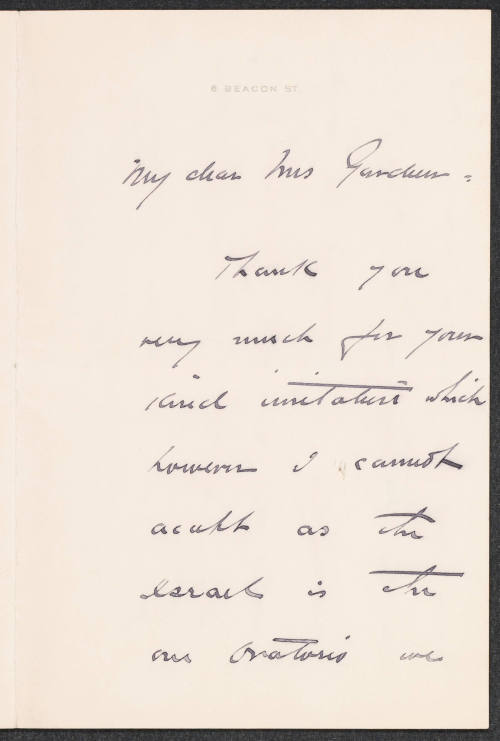 6 BEACON ST.
My dear Mrs Gardner -
Thank you
very much for your
kind invitation which
however I cannot
accept as the
Israel is the
one Oratorio we